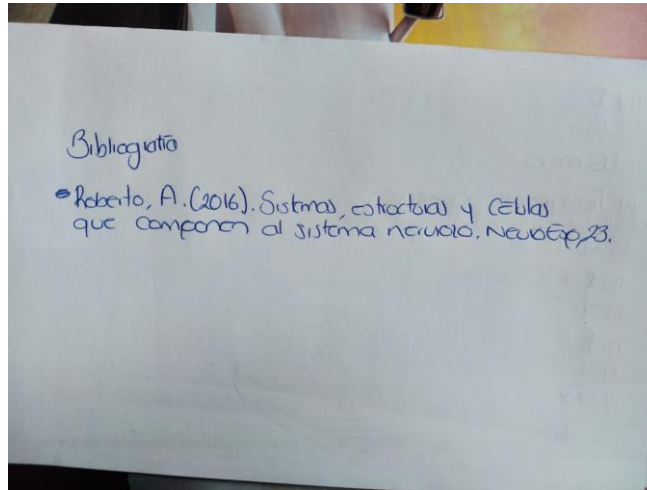 Bibliografía
• Roberto, A. (2016). Sistemas, estructuras y células
que componen al sistema nervioso. NeuroExp, 23.